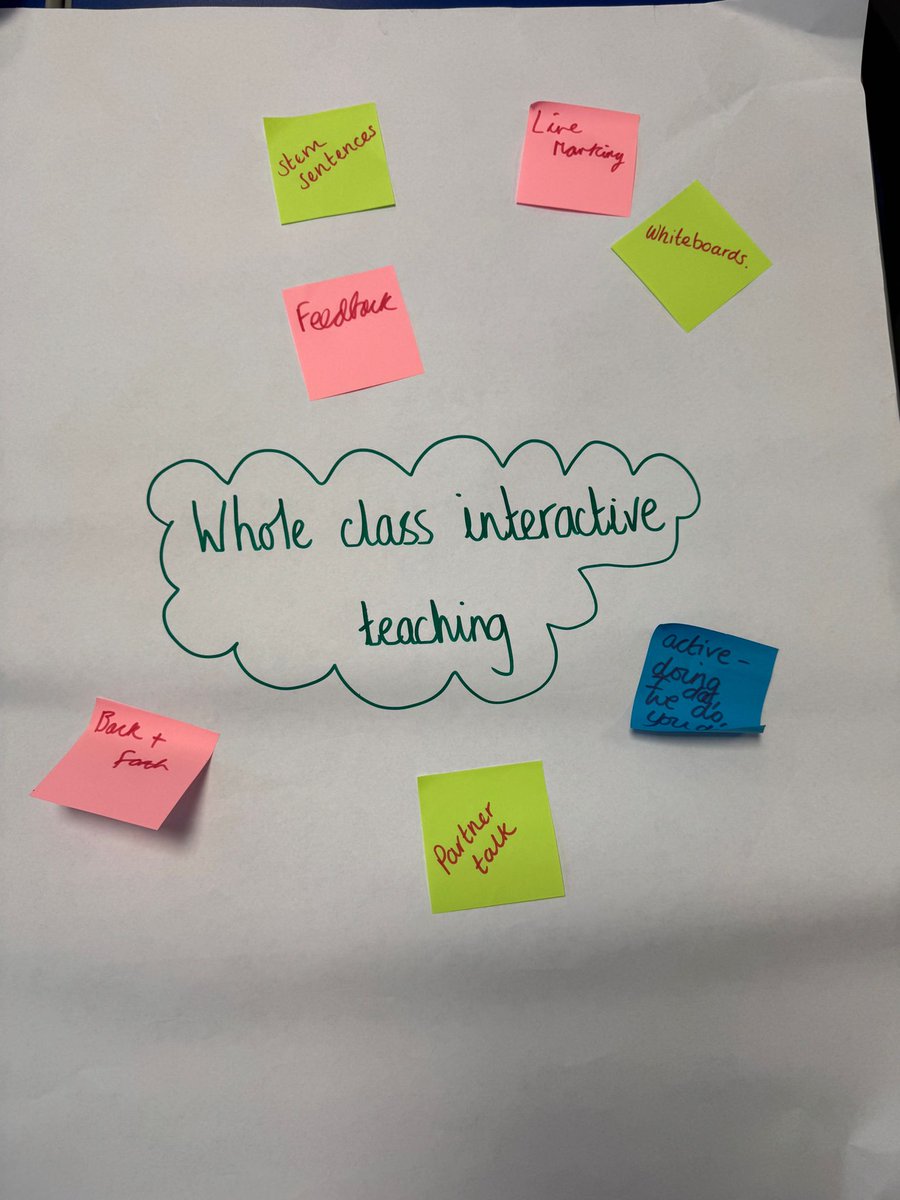 Stem
sentences
Live
Marking
Whiteboards.
Feedback
Whole class interactive
teaching
active -
doing
we do,
Back +
Partner
talk